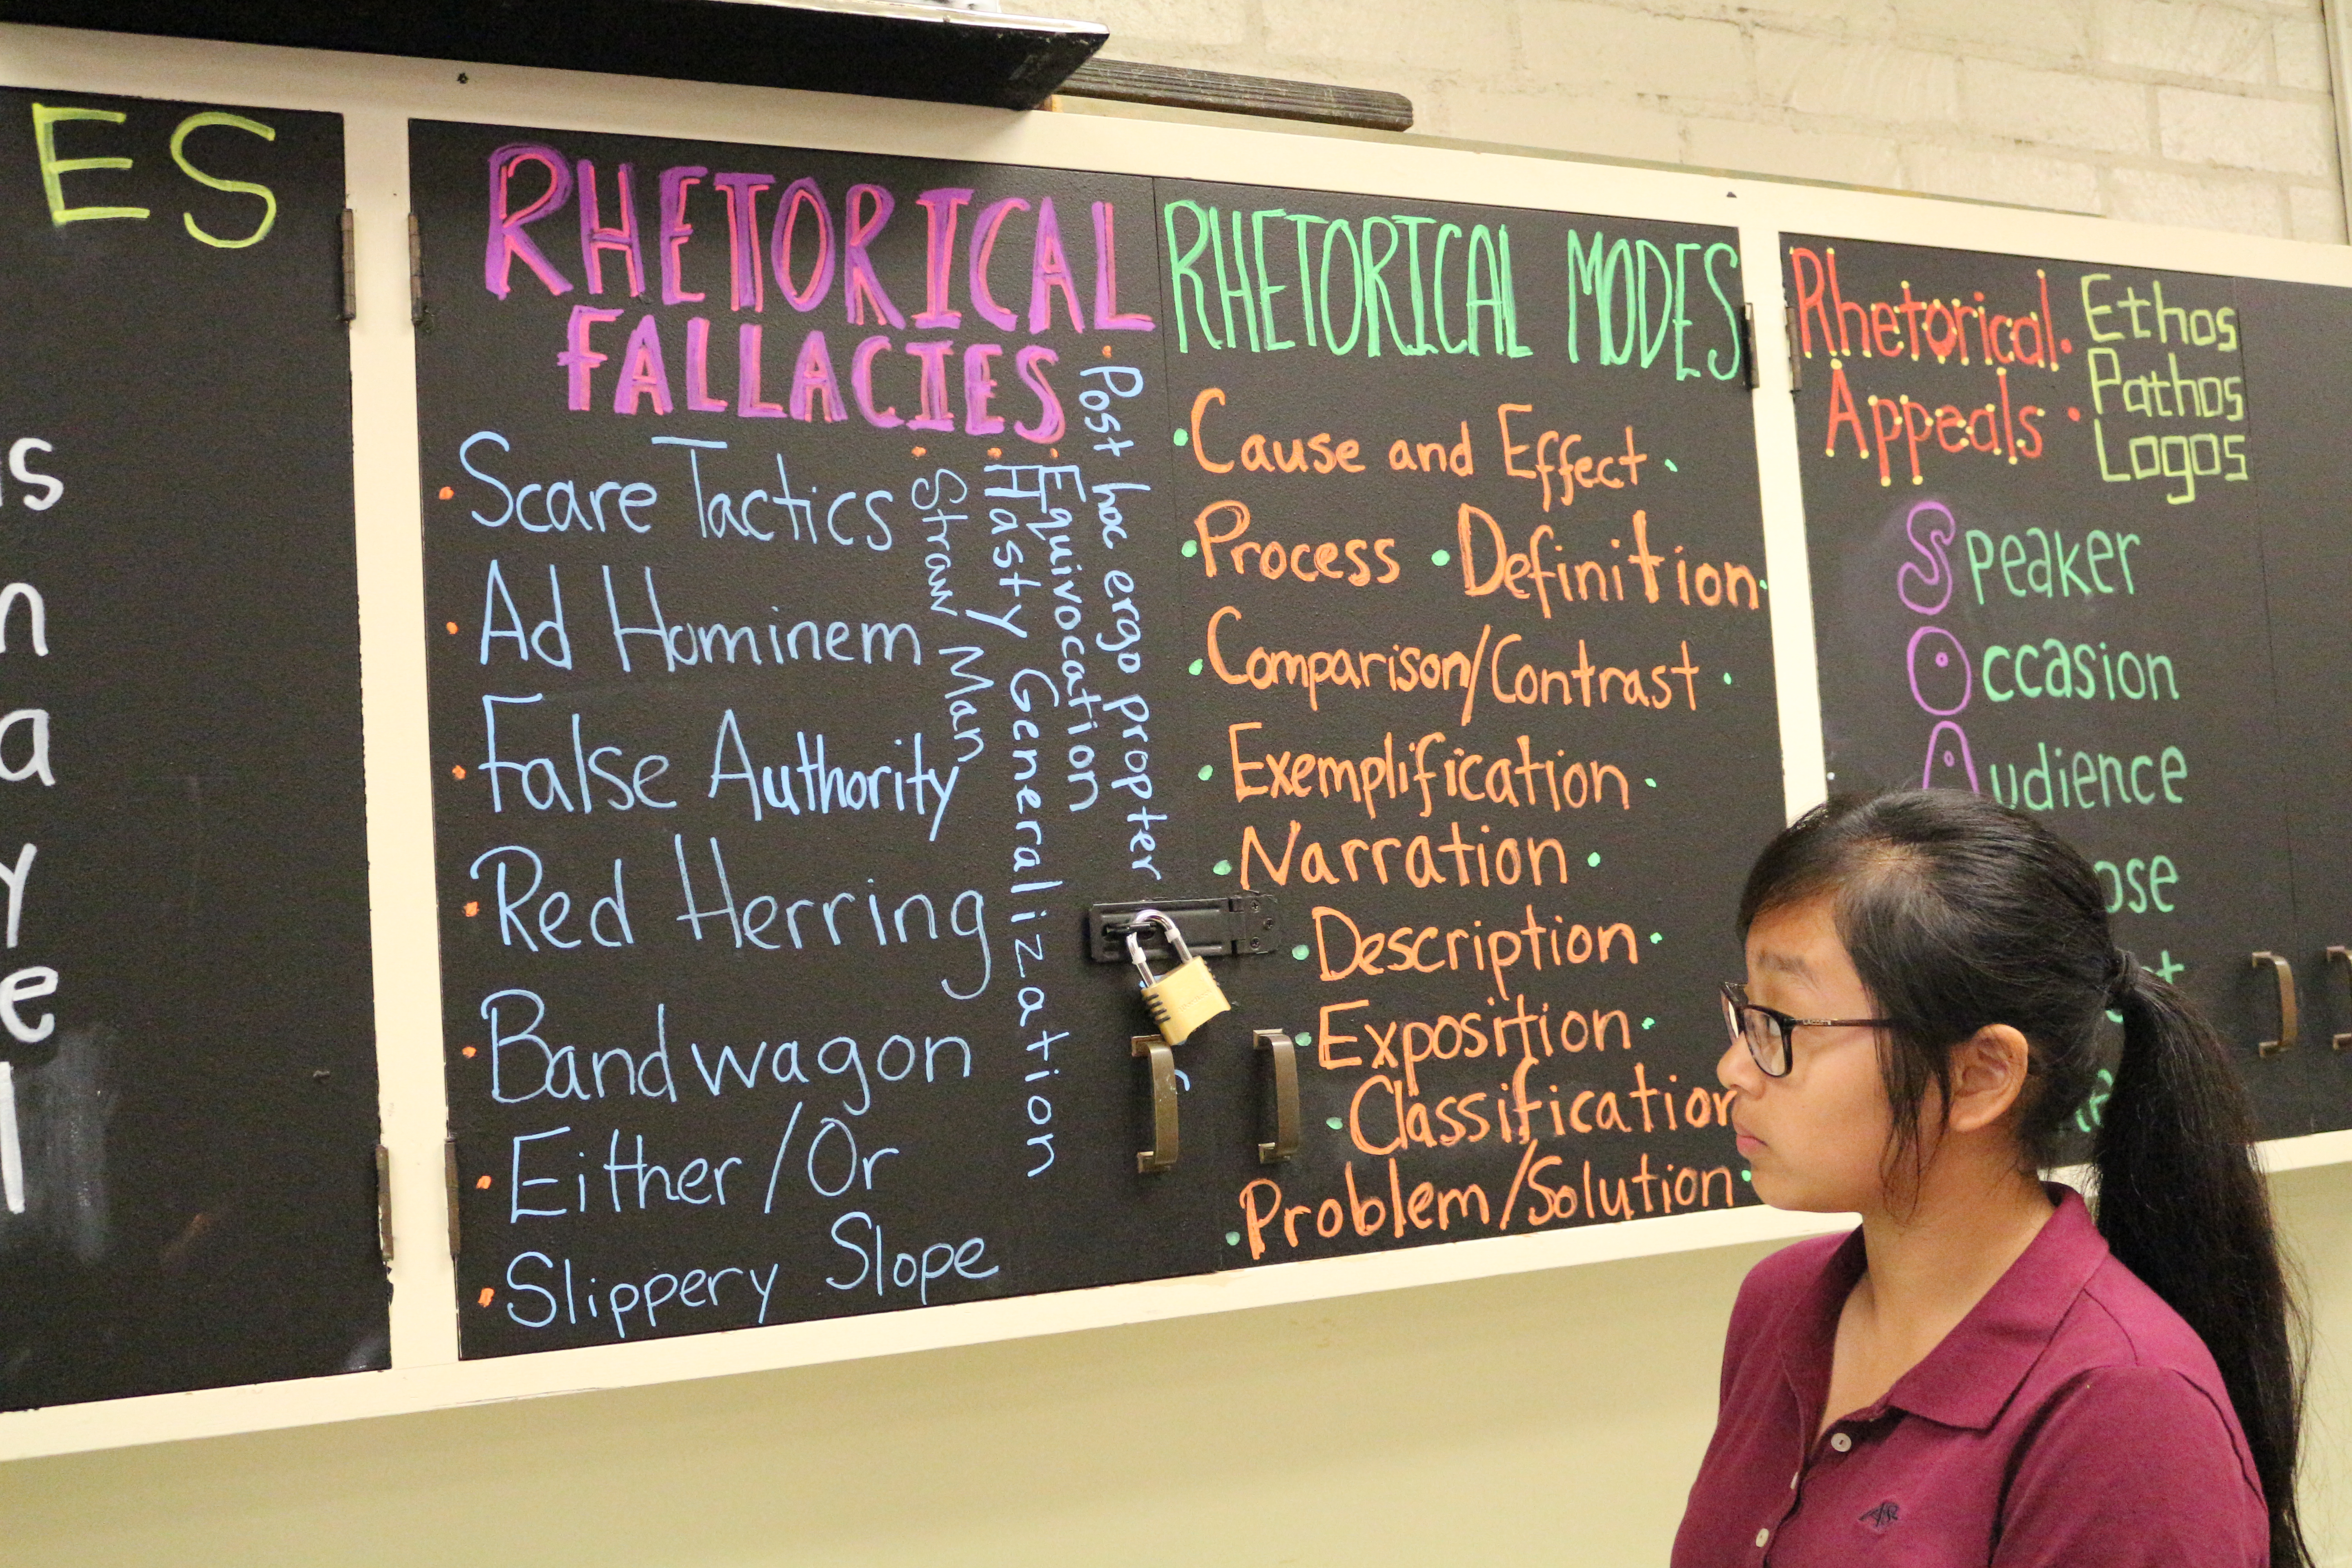 ES
s
n
a
y
e
l
RHETORICAL
FALLACIES
Scare Tactics
Ad Hominem
False Authority
Red Herring
Bandwagon
Either/Or
Slippery Slope
Straw Man
Hasty Generalization
Equivocation
Post hoc ergo propter
RHETORICAL MODES
Cause and Effect
Process • Definition
Comparison/Contrast
Exemplification
Narration
Description
Exposition
Classification
Problem/Solution
Rhetorical
Appeals
Ethos
Pathos
Logos
Speaker
Occasion
Audience
ose